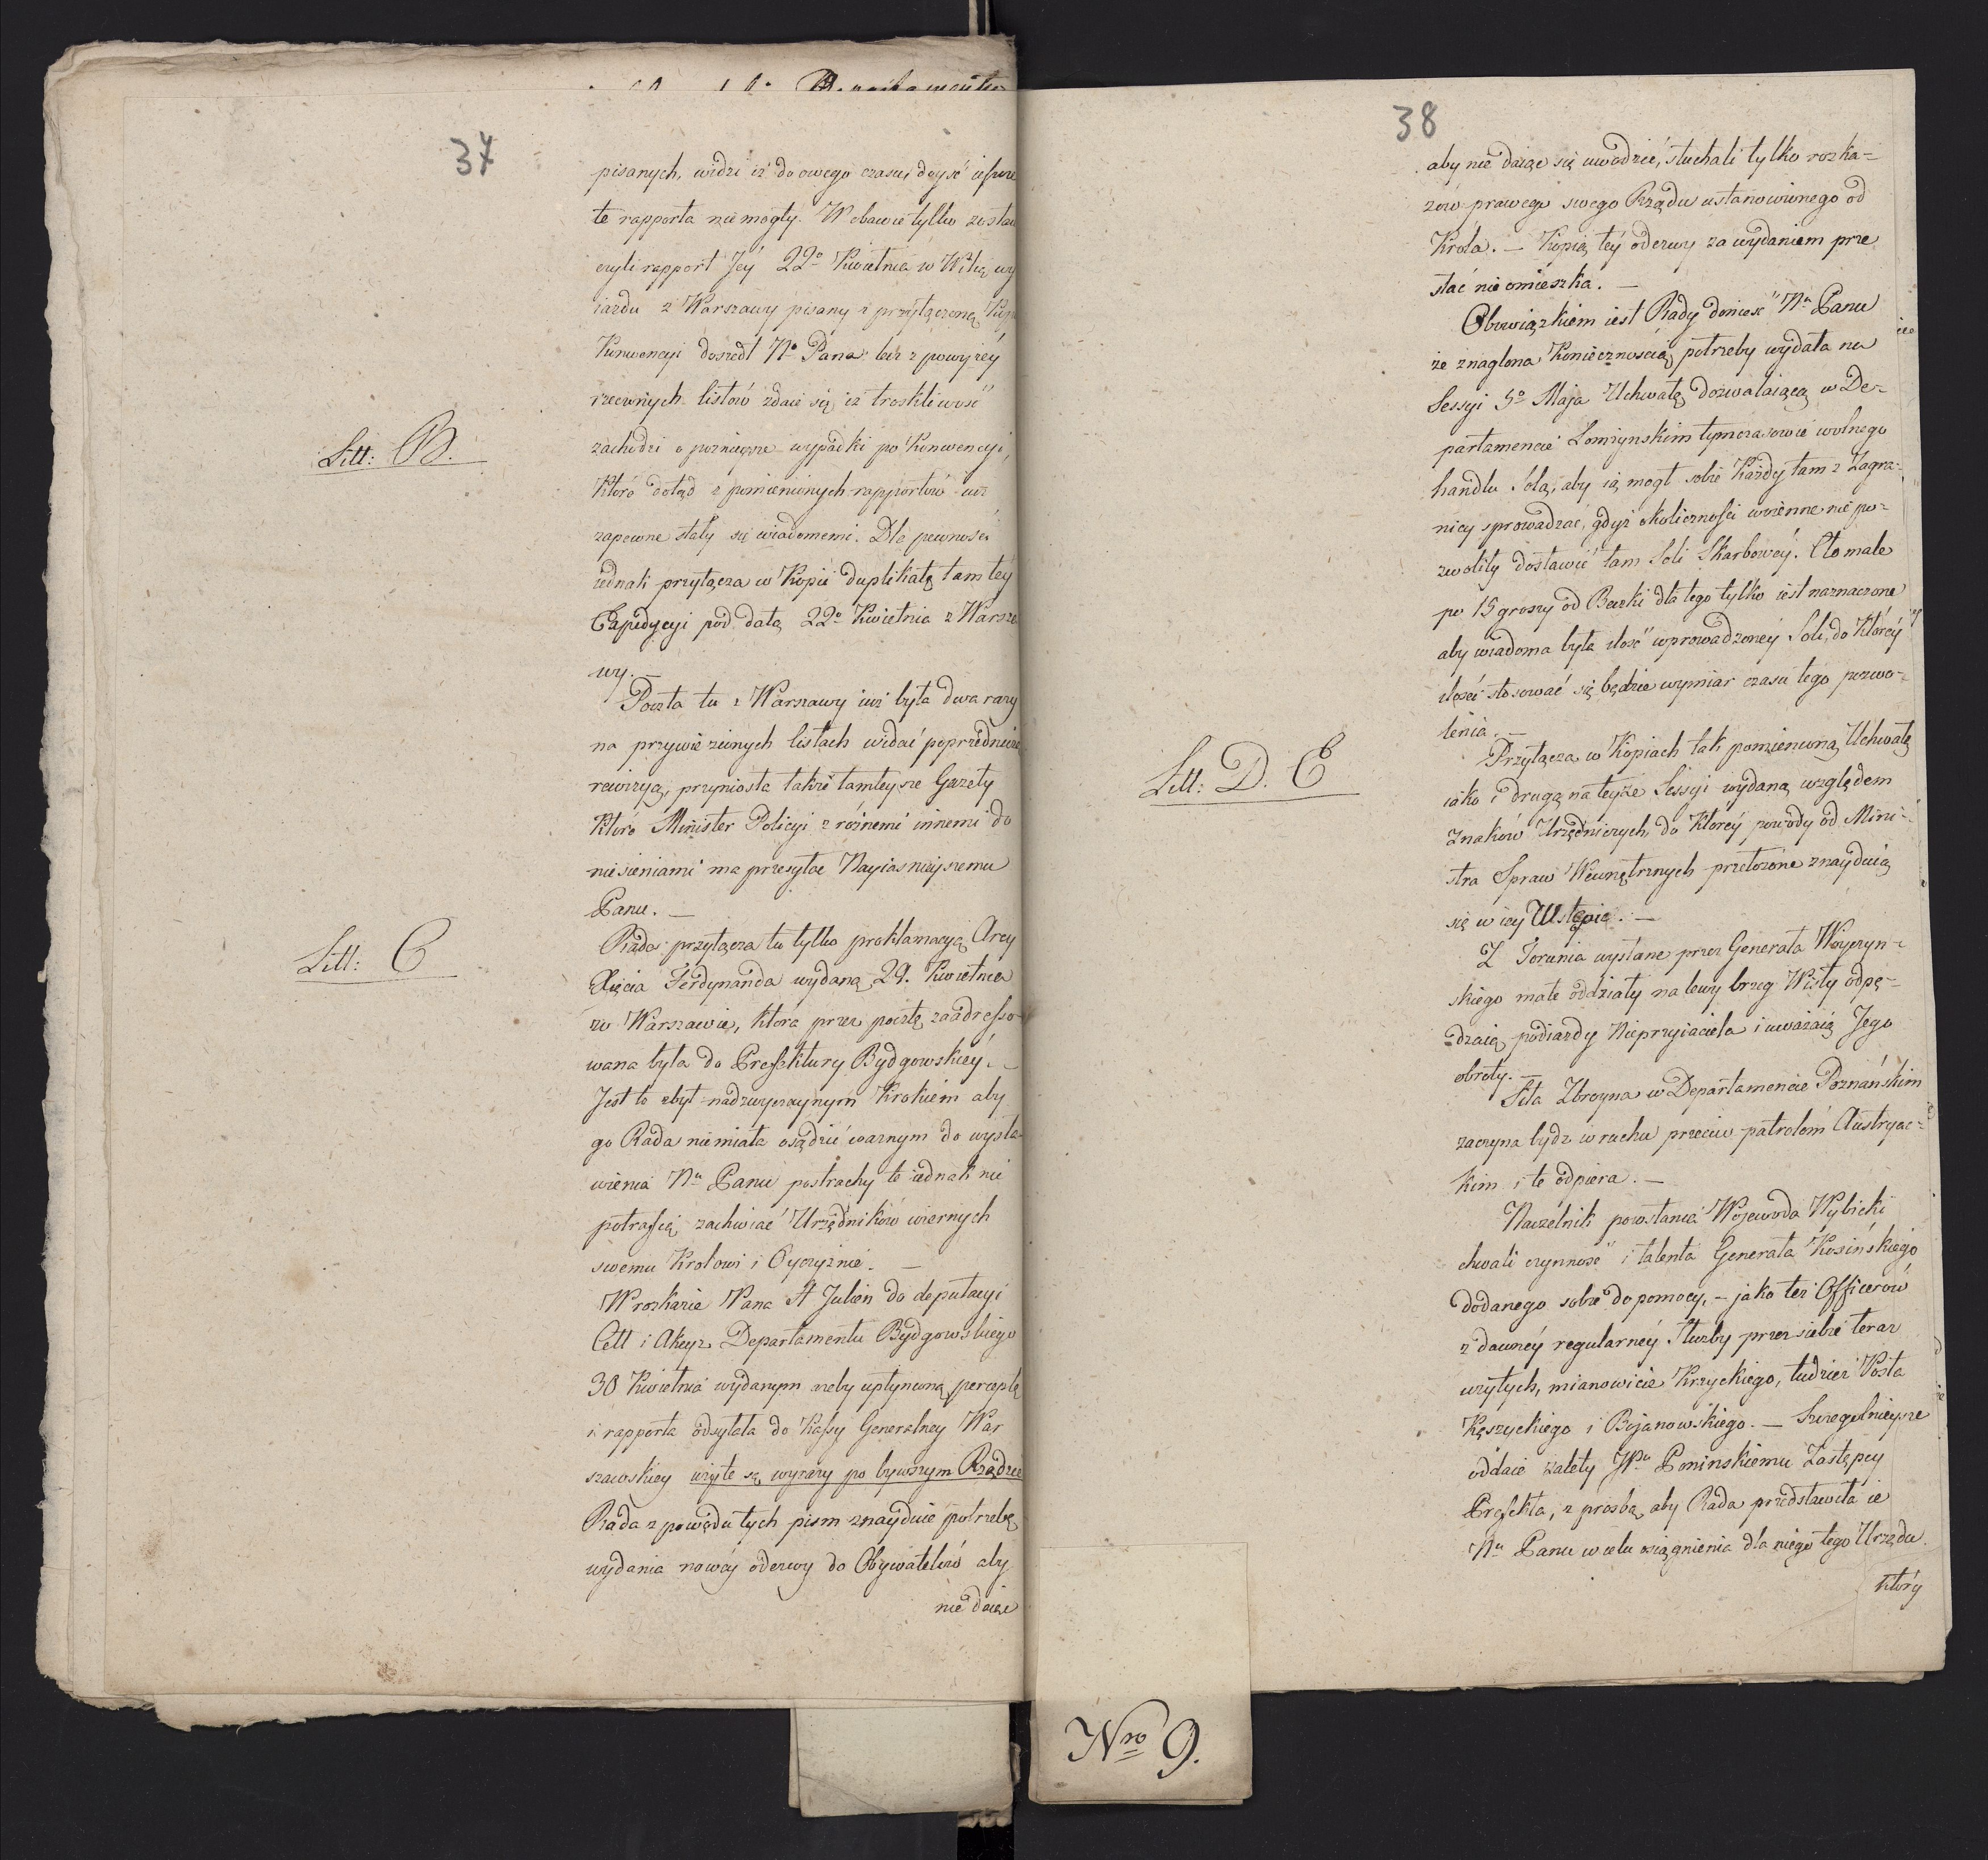 37
pisanych, widzi iż do owego czasu, dóyść ieszcze
te rapporta nie mogły. W obawie tylko zostaie
czyli rapport Jéy 22º Kwietnia w Wilią wy
iazdu z Warszawy pisany z przyłączoną Kopią
Konwencyi doszedł Nº Pana lecz z powyżéy
rzeconych listów zdaie się iż troskliwość
Litt: B.
zachodzi o poznieysze wypadki po Konwencyi,
które dotąd z pomienionych rapportów iuż
zapewne stały się wiadomemi. Dla pewności
iednak przyłącza w Kopii duplikatę tamtéy
Expedycyi pod datą 22º Kwietnia z Warsza
wy. —
Poczta tu z Warszawy iuż była dwa razy
na przywiezionych listach widać poprzedniczą
rewizyą, przyniosła także tamteysze Gazety
które Minister Policyi z róznemi innemi do
niesieniami ma przesyłać Nayiasnieyszemu
Panu. —
Litt: C
Rada przyłącza tu tylko proklamacyą Arcy
Xięcia Ferdynanda wydaną 29. Kwietnia
w Warszawie, która przez pocztę zaadresso-
wana była do Prefektury Bydgowskiéy. —
Jest to zbyt nadzwyczaynym Krokiem aby
go Rada niemiała osądzić ważnym do wysta-
wienia Nu Panu postrachy te iednak nie
potrafią zachwiać Urzędników wiernych
swemu Krolowi i Oyczyznie. —
W rozkazie Pana St Julien do deputacyi
Cell i Akcyz Departamentu Bydgowskiego
30 Kwietnia wydanym żeby upłynioną perceptę
i rapporta odsyłała do Kassy Generalney War
szawskiey użyte są wyrazy po bywszym Rządzie
Rada z powodu tych pism znayduie potrzebę
wydania nowéj odezwy do Obywatelów aby
nie daiąc
38
aby nie daiąc się uwodzić, słuchali tylko rozka-
zów prawego swego Rządu ustanowionego od
Krola. — Kopią téy odezwy za wydaniem prze
słać nie omieszka. —
Obowiązkiem iest Rady donieść Nu Panu
że znaglona Koniecznością potrzeby wydała na
Sessyi 5º Maja Uchwałę dozwalaiącą w De-
partamencie Łomżynskim tymczasowie wolnego
handlu Solą, aby ią mogł sobie Każdy tam z Zagra-
nicy sprowadzać, gdyż okoliczności woienne nie po-
zwoliły dostawić tam Soli Skarbowéy. Cło małe
po 15 groszy od Beczki dla tego tylko iest naznaczone
aby wiadoma była ilość wprowadzonéy Soli, do któréy
ilości stosować się będzie wymiar czasu tego pozwo-
lenia. —
Litt: D. E
Przyłącza w Kopiach tak pomienioną Uchwałę
iako i drugą na teyże Sessyi wydaną względem
Znaków Urzędniczych do któréy powody od Mini-
stra Spraw Wewnętrznych przełożone znayduią
się w iey Wstępie. —
Z Torunia wysłane przez Generała Woyczyn-
skiego małe oddziały na lewy brzeg Wisły odpę-
dzaią podiazdy Nieprzyiaciela i uważaią Jego
obroty. —
Siła Zbroyna w Departamencie Poznańskim
zaczyna bydz w ruchu przeciw patrolom Austryac-
kim i te odpiera. —
Naczelnik powstania Wojewoda Wybicki
chwali czynność i talenta Generała Kosińskiego
dodanego sobie do pomocy, — jako też Officerów
z dawnéy regularnéy służby przez siebie teraz
użytych, mianowicie Krzyckiego, tudzież Posła
Kęszyckiego i Bojanowskiego. — Szczegolnieysze
oddaie zalety JPu Poninskiemu Zastępcy
Prefekta, z prozbą, aby Rada przedstawiła ie
Nu Panu w celu osiągnienia dla niego tego Urzędu.
który
Nro 9.